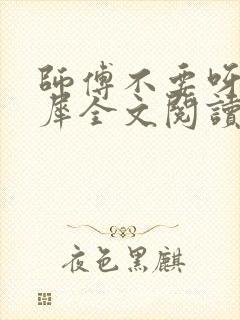 師傅不要呀
犀全文閱讀
夜色黑麒